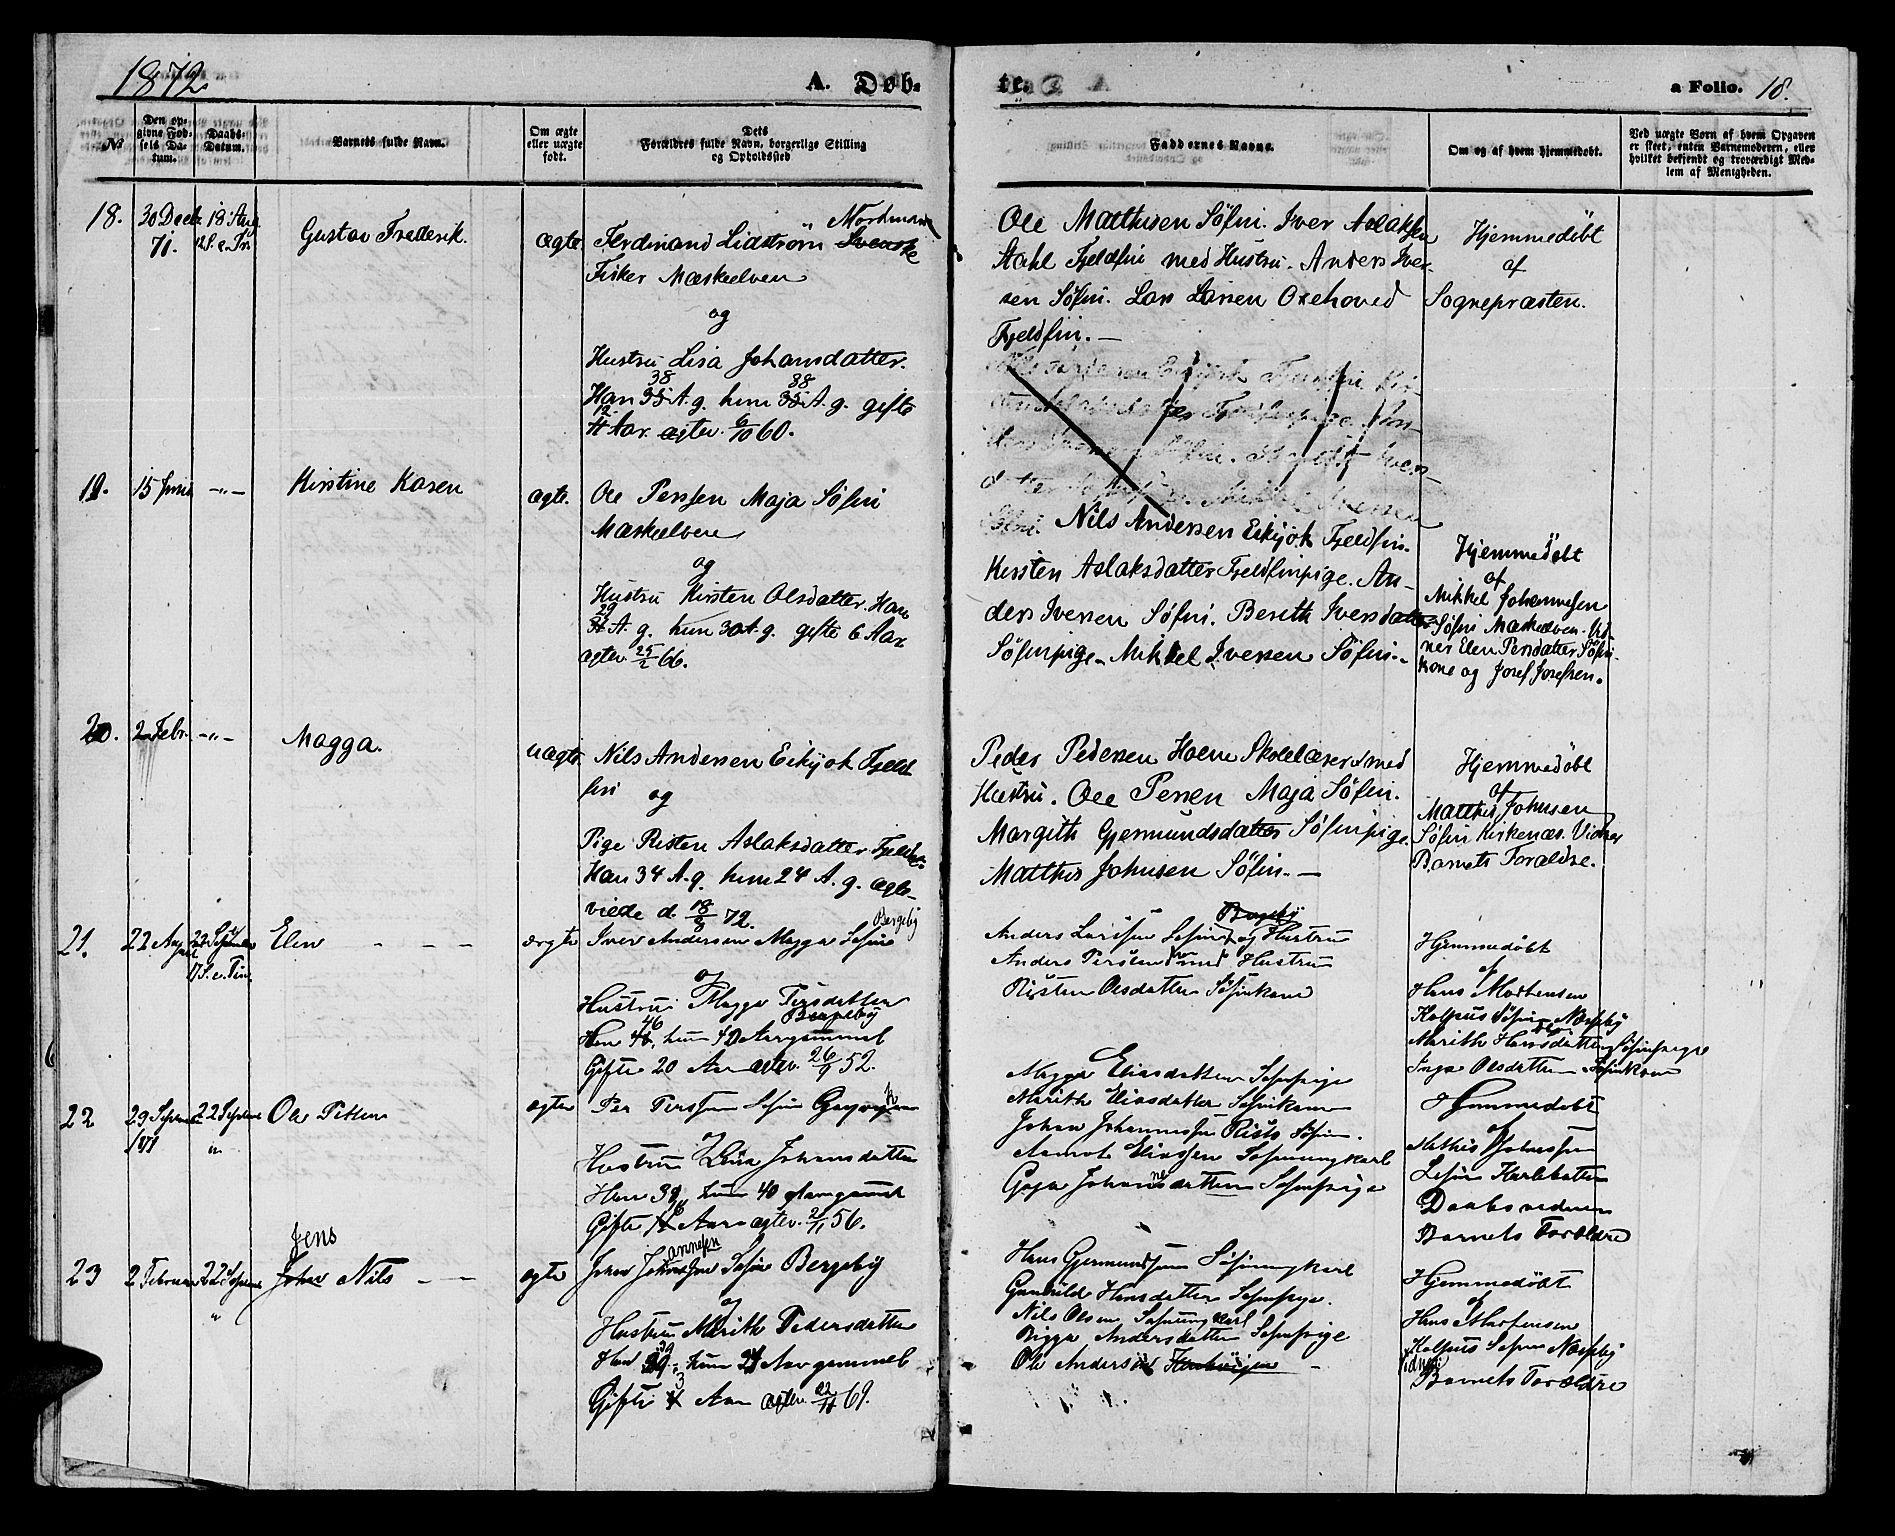 1872.
A. Døb-
te.
a Folio. 18.
No
Den op-
givne Fød-
sels Da-
tum.
Daabs-
Datum.
Barnets fulde Navn.
Om ægte
eller uægte
født.
Dets
Forældres fulde Navn, borgerlige Stilling
og Opholdssted
Faddernes Navne.
Om og af hvem hjemmedøbt.
Ved uægte Børn af hvem Opgaven
er skeet, enten Barnemoderen, eller
hvilket bekjendt og troværdigt Med-
lem af Menigheden.
18.
30 Decbr
71.
18 Aug
12 S. e. Tri
Gustav Frederik.
ægte
Nordmand
Ferdinand Lidström Svenske
Fisker Mæskelven
og
Hustru Lisa Johansdatter.
38 38
Han 35 A. g. hun 35 A. g. gifte
12
11 Aar ægtev. 6/10 60.
Ole Matthisen Søfin. Iver Aslaksen
Stahl Fjeldfin med Hustru. Anders Iver-
sen Søfin. Lars Larsen Oxehoved
Fjeldfin. —
Hjemmedøbt
af
Sognepræsten.
19.
15 Juni
-"-
Kirstine Karen
ægte.
Ole Persen Maja Søfin
Mæskelven
og
Hustru Kirsten Olsdatter. Han
29
31 A. g. hun 30 A. g. gifte 6 Aar
ægtev. 25/2 66.
Nils Andersen Eikjok Fjeldfin.
Kirsten Aslaksdatter Fjeldfinpige. An-
ders Iversen Søfin. Berith Iversdatter
Søfinpige. Mikkel Iversen Søfin. -
Hjemmedøbt
af
Mikkel Johannesen
Søfin Mæskelven. Vid-
ner Elen Persdatter Søfin-
kone og Josef Josefsen.
20.
2 Febr.
-"-
Magga.
uægte
Nils Andersen Eikjok Fjeld
fin
og
Pige Risten Aslaksdatter Fjeldfin
Han 34 A. g. hun 24 A. g. ægte-
viede d. 18/8 72.
Peder Pedersen Hoem Skolelærer med
Hustru. Ole Persen Maja Søfin.
Margith Gjermundsdatter Søfinpige.
Matthis Johnsen Søfin. —
Hjemmedøbt
af
Matthis Johnsen
Søfin Kirkenæs. Vidner
Barnets Forældre.
21.
22 August
22 September
17 S. e. Trin.
Elen - - -
ægte
Bergeby
Iver Andersen Magga Søfin
og
Hustru Magga Persdatter
Bergeby
46
Han 46, hun 40 Aar gammel
Gifte 20 Aar ægtev. 26/9 52.
Bergeby
Anders Larsen Søfin og Hustru
Anders Persen med Hustru
Risten Olsdatter Søfinkone
Hjemmedøbt
af
Hans Mortensen
Kolpus Søfin Næseby
Marith Hansdatter Søfinpige
Inga Olsdatter Søfinkone
22
29 September
1871
22 September
"
Ole Petter
ægte
Per Persen Søfin
og
Hustru Lisa Johansdatter
Han 38, hun 40 Aar gammel
Gifte Aar ægtev. 2/11 56.
Magga Eliasdatter Søfinpige
Marith Eliasdatter Søfinkone
Johan Johannessen Risto Søfin.
Aamot Eliassen Søfinungkarl
Gaga Johannesdatter Søfinpige
Hjemmedøbt
af
Mathis Johnsen
Søfin Karlebotten
Daabsvidner
Barnets Forældre
23
2 Februar
22 September
"
Jens
John Nils - -
ægte
annesen
Johan Johnsen Søfin Bergeby
og
Hustru Marith Pedersdatter
Han 29, hun 24 Aar gammel
3
Gifte 4 Aar ægtev. 22/11 69.
Hans Gjermundsen Søfinungkarl
Gunhilde Hansdatter Søfinpige.
Nils Olsen Søfinungkarl
Bigga Andersdatter Søfinpige
Ole Andersen
Hjemmedøbt
af
Hans Mortensen
Kolpus Søfin Næseby
Vidner
Barnets Forældre